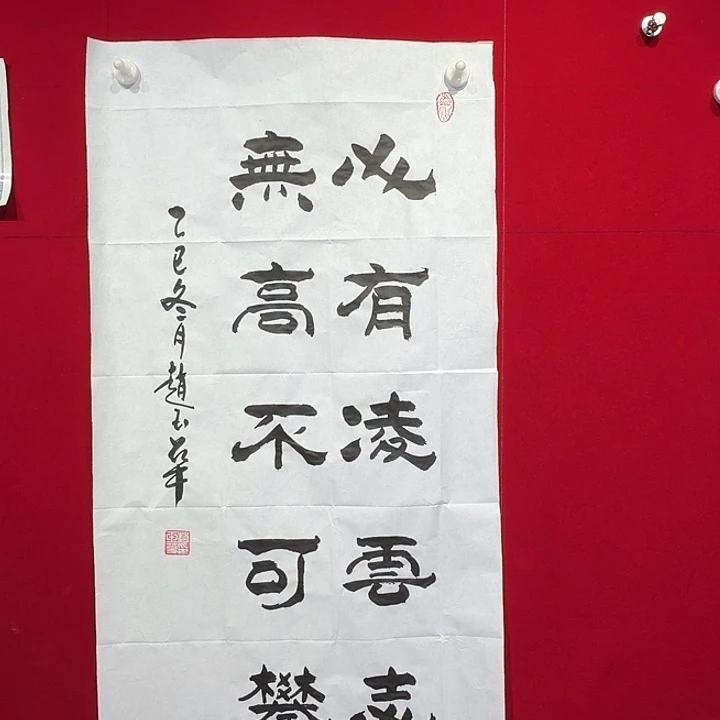 心有凌雲志
無高不可攀
乙巳冬月趙玉華